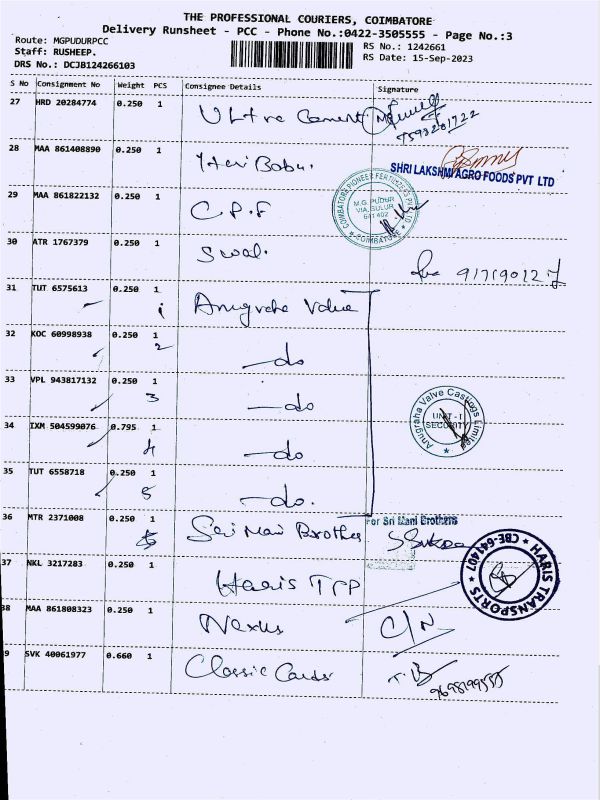 THE PROFESSIONAL COURIERS, COIMBATORE
Delivery Runsheet - PCC - Phone No.:0422-3505555 - Page No.:3
Route: MGPUDURPCC
Staff: RUSHEEP.
DRS No.: DCJB124266103
RS No.: 1242661
RS Date: 15-Sep-2023
S No Consignment No Weight PCS Consignee Details Signature
27 HRD 20284774 0.250 1 Ultra Cement
28 MAA 861408890 0.250 1 Babu.
SHRI LAKSHMI AGRO FOODS PVT LTD
29 MAA 861822132 0.250 1 C.P.F
COIMBATORE PIONEER FERTILIZERS PVT LTD
M.G. PUDUR
VIA, SULUR
641 402
* COIMBATORE *
30 ATR 1767379 0.250 1
31 TUT 6575613 0.250 1 1 Anugraha Valve
32 KOC 60998938 0.250 1 2 —do
33 VPL 943817132 0.250 1 3 —do
34 IXM 504599076 0.795 1 4 —do
Anugraha Valve Castings Limited
UNIT - I
SECURITY
35 TUT 6558718 0.250 1 5 —do.
36 MTR 2371008 0.250 1 Sri Mani Brothers
For Sri Mani Brothers
37 NKL 3217283 0.250 1 Haris TPP
* HARIS TRANSPORTS * CBE-641407
38 MAA 861808323 0.250 1 Nexus C/N
9 SVK 40061977 0.660 1 Classic Cards